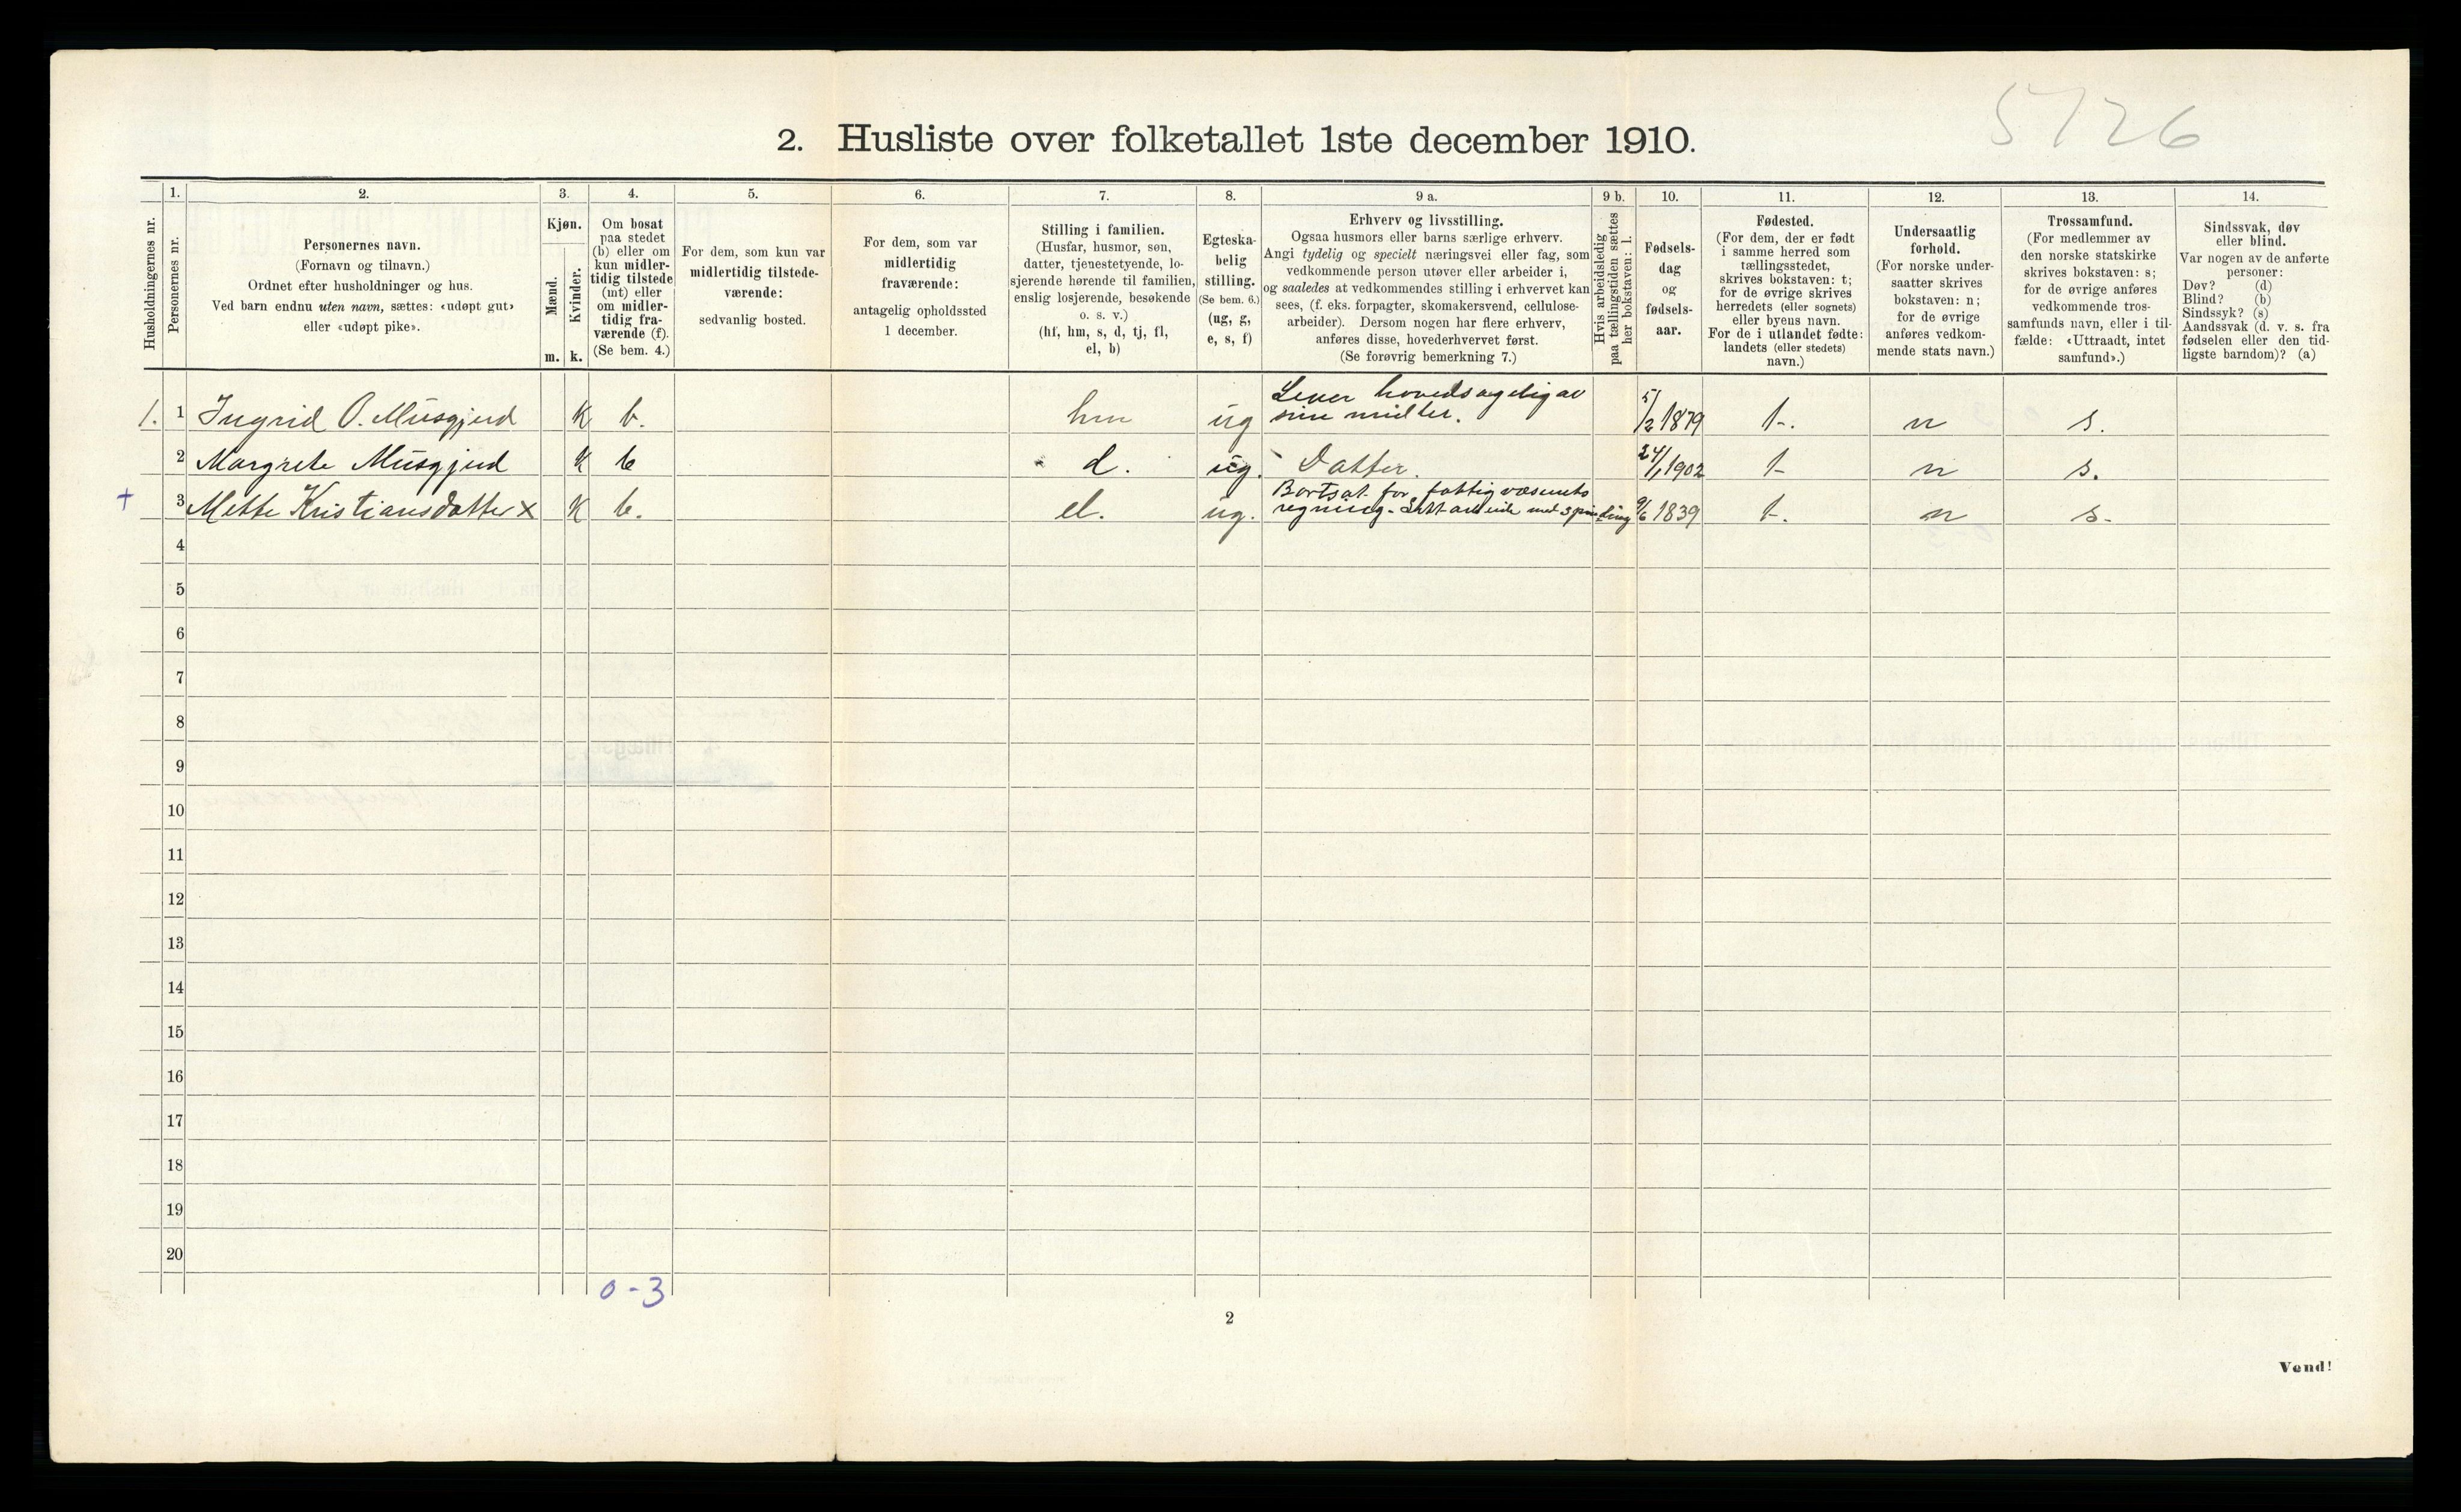 5726
2. Husliste over folketallet 1ste december 1910.
Husholdningernes nr.
1.
Personernes nr.
2.
Personernes navn.
(Fornavn og tilnavn.)
Ordnet efter husholdninger og hus.
Ved barn endnu uten navn, sættes: «udøpt gut»
eller «udøpt pike».
3.
Kjøn.
Mænd.
Kvinder.
m. k.
4.
Om bosat
paa stedet
(b) eller om
kun midler-
tidig tilstede
(mt) eller
om midler-
tidig fra-
værende (f).
(Se bem. 4.)
5.
For dem, som kun var
midlertidig tilstede-
værende:
sedvanlig bosted.
6.
For dem, som var
midlertidig
fraværende:
antagelig opholdssted
1 december.
7.
Stilling i familien.
(Husfar, husmor, søn,
datter, tjenestetyende, lo-
sjerende hørende til familien,
enslig losjerende, besøkende
o. s. v.)
(hf, hm, s, d, tj, fl,
el, b)
8.
Egteska-
belig
stilling.
(Se bem. 6.)
(ug, g,
e, s, f)
9 a.
Erhverv og livsstilling.
Ogsaa husmors eller barns særlige erhverv.
Angi tydelig og specielt næringsvei eller fag, som
vedkommende person utøver eller arbeider i,
og saaledes at vedkommendes stilling i erhvervet kan
sees, (f. eks. forpagter, skomakersvend, cellulose-
arbeider). Dersom nogen har flere erhverv,
anføres disse, hovederhvervet først.
(Se forøvrig bemerkning 7.)
9 b.
Hvis arbeidsledig
paa tællingstiden sættes
her bokstaven: l.
10.
Fødsels-
dag
og
fødsels-
aar.
11.
Fødested.
(For dem, der er født
i samme herred som
tællingsstedet,
skrives bokstaven: t;
for de øvrige skrives
herredets (eller sognets)
eller byens navn.
For de i utlandet fødte:
landets (eller stedets)
navn.)
12.
Undersaatlig
forhold.
(For norske under-
saatter skrives
bokstaven: n;
for de øvrige
anføres vedkom-
mende stats navn.)
13.
Trossamfund.
(For medlemmer av
den norske statskirke
skrives bokstaven: s;
for de øvrige anføres
vedkommende tros-
samfunds navn, eller i til-
fælde: «Uttraadt, intet
samfund».)
14.
Sindssvak, døv
eller blind.
Var nogen av de anførte
personer:
Døv? (d)
Blind? (b)
Sindssyk? (s)
Aandssvak (d. v. s. fra
fødselen eller den tid-
ligste barndom)? (a)
1. 1 Ingrid O. Musgjerd K b. hm ug Lever hovedsagelig av
sine midler. 5/2 1879 t. n s.
2 Margrete Musgjerd K b d. ug. Datter. 24/1 1902 t n s.
+ 3 Mette Kristiansdatter x K b. el. ug. Bortsat for fattigvæsenets
regning - Lett arbeide med spinding 9/6 1839 t. n s.
4
5
6
7
8
9
10
11
12
13
14
15
16
17
18
19
20
0-3
2
Vend!